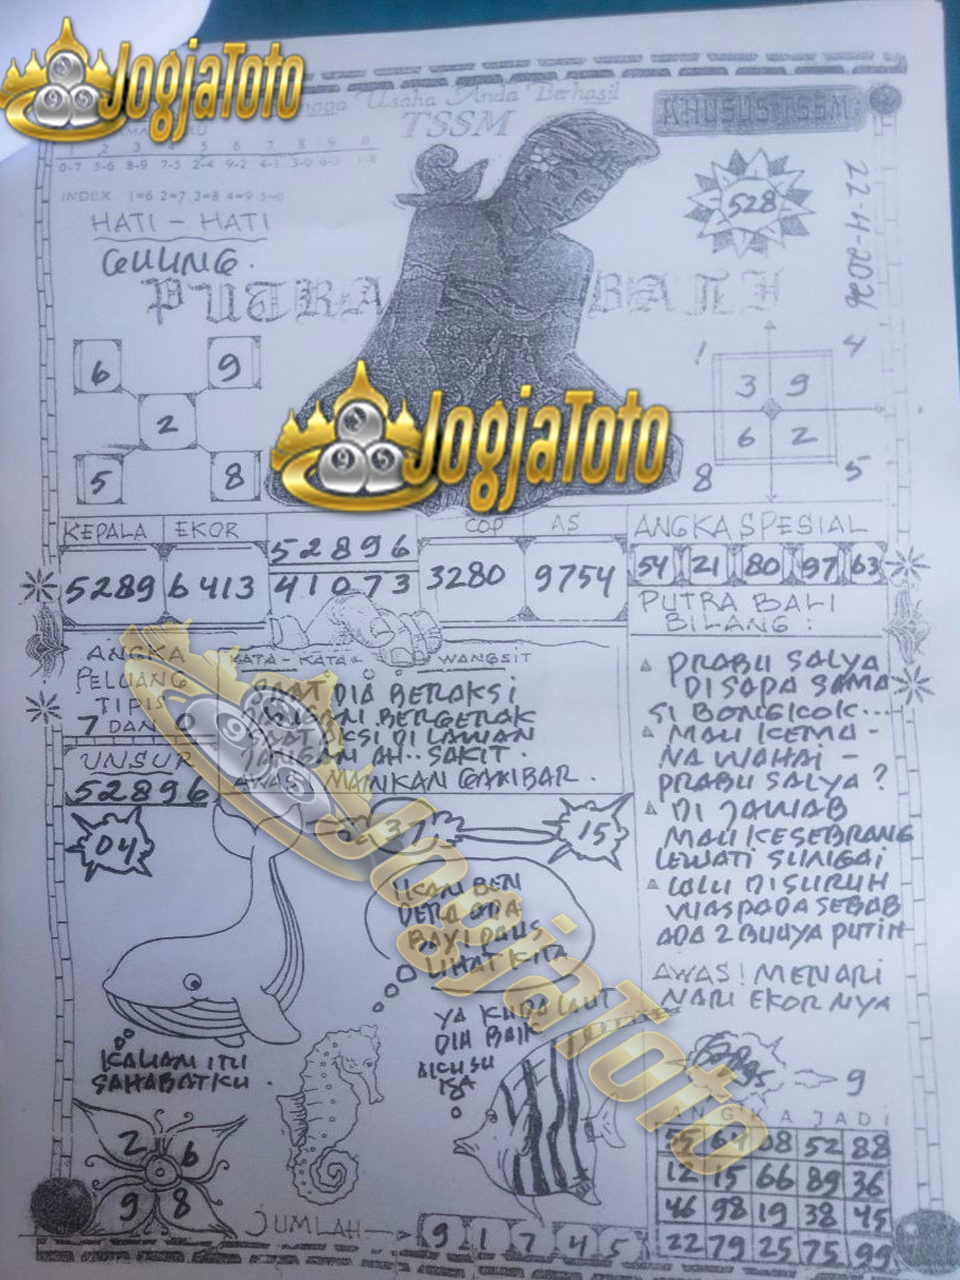 JogjaToto
Usaha Anda Berhasil
TSSM
KHUSUS TSSM
22-4-2026
2 3 5 6 7 8 9 0
0-7 5-6 8-9 7-5 2-4 9-2 4-1
INDEX 1=6 2=7 3=8 4=9 5=0
HATI - HATI
GULUNG.
528
PUTRA BALI
6 9
2
5 8
1 4
3 9
6 2
8 5
JogjaToto
KEPALA EKOR COP AS
5289 6413
52896
41073
3280 9754
ANGKA SPESIAL
54 21 80 97 63
PUTRA BALI
BILANG :
ANGKA
PELUANG
TIPIS
7 DAN 0
UNSUR
52896
KATA - KATA WANGSIT
SAAT DIA BERAKSI
JANGAN BERGERAK
SAAT AKSI DI LAWAN
JANGAN AH.. SAKIT.
AWAS MAINKAN GAMBAR.
PRABU SALYA
DI SAPA SAMA
SI BONGKOK...
MAU KEMA -
NA WAHAI -
PRABU SALYA ?
DI JAWAB
MAU KESEBRANG
LEWATI SUNGAI
LALU DISURUH
WASPADA SEBAB
ADA 2 BUAYA PUTIH
AWAS! MENARI
NARI EKORNYA
04
37
15
IKAN BEN
DERA ADA
BAYI PAUS
LIHAT KITA
YA KUDA LAUT
DIA BAIK
KALIAN ITU
SAHABATKU.
JogjaToto
9
ANGKA JADI
55 64 08 52 88
12 15 66 89 36
46 98 19 38 45
22 79 25 75 99
2 6
9 8
JUMLAH
9 1 7 4 5